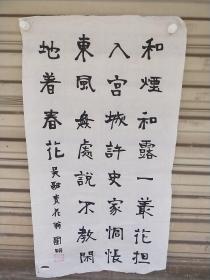 和煙和露一叢花担
入宮城許史家惆悵
東風無處說不教閑
地着春花
吳融賣花翁